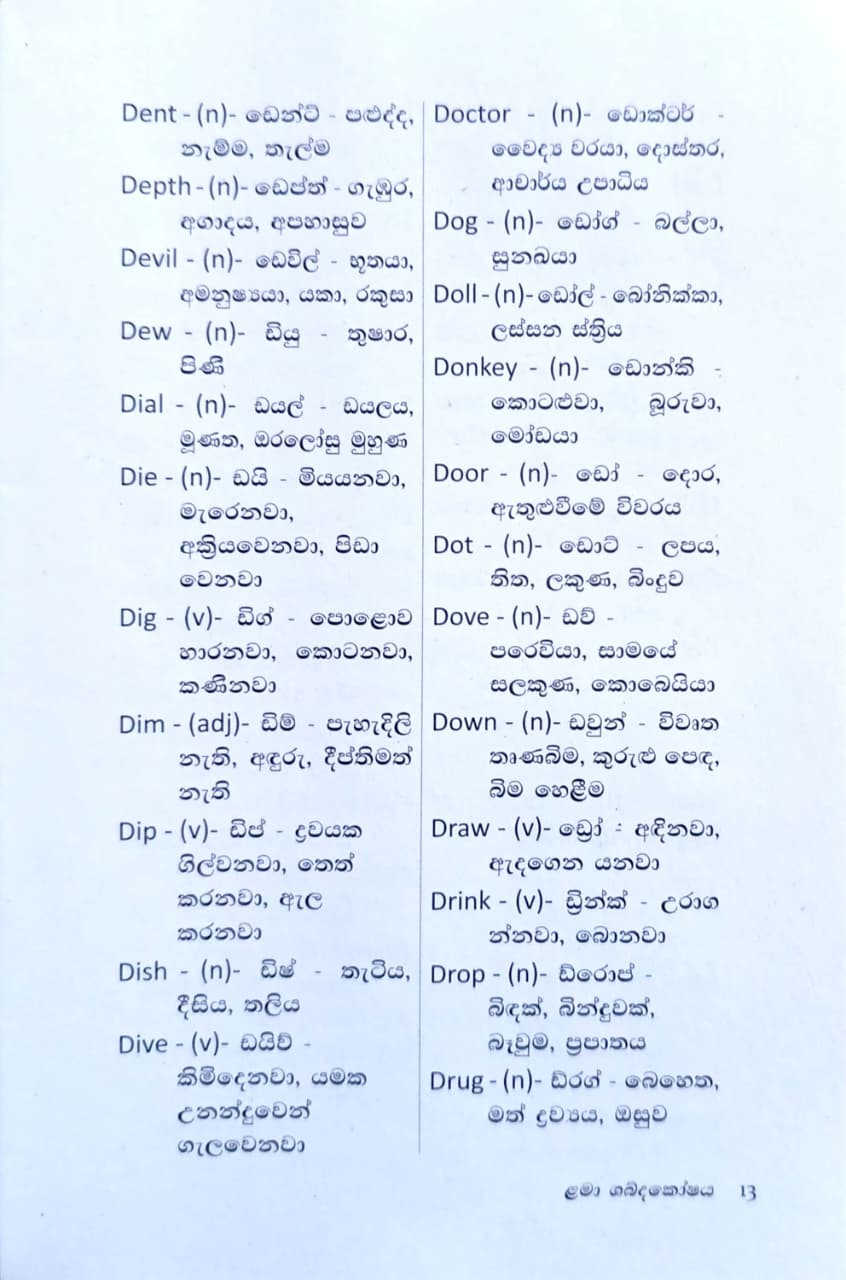 Dent - (n)- ඩෙන්ට් - පළුද්ද,
නැම්ම, තැල්ම
Depth - (n)- ඩෙප්ත් - ගැඹුර,
අගාදය, අපහාසුව
Devil - (n)- ඩෙවිල් - භූතයා,
අමනුෂ්‍යයා, යකා, රකුසා
Dew - (n)- ඩියු - තුෂාර,
පිණි
Dial - (n)- ඩයල් - ඩයලය,
මූණත, ඔරලෝසු මුහුණ
Die - (n)- ඩයි - මියයනවා,
මැරෙනවා,
අක්‍රියවෙනවා, පිඩා
වෙනවා
Dig - (v)- ඩිග් - පොළොව
හාරනවා, කොටනවා,
කණිනවා
Dim - (adj)- ඩිම් - පැහැදිලි
නැති, අඳුරු, දීප්තිමත්
නැති
Dip - (v)- ඩිප් - ද්‍රවයක
ගිල්වනවා, තෙත්
කරනවා, ඇල
කරනවා
Dish - (n)- ඩිෂ් - තැටිය,
දීසිය, තලිය
Dive - (v)- ඩයිව් -
කිමිදෙනවා, යමක
උනන්දුවෙන්
ගැලවෙනවා
Doctor - (n)- ඩොක්ටර් -
වෛද්‍ය වරයා, දොස්තර,
ආචාර්ය උපාධිය
Dog - (n)- ඩෝග් - බල්ලා,
සුනඛයා
Doll - (n)- ඩෝල් - බෝනික්කා,
ලස්සන ස්ත්‍රිය
Donkey - (n)- ඩොන්කි -
කොටළුවා, බූරුවා,
මෝඩයා
Door - (n)- ඩෝ - දොර,
ඇතුළුවීමේ විවරය
Dot - (n)- ඩොට් - ලපය,
තිත, ලකුණ, බිංදුව
Dove - (n)- ඩව් -
පරෙවියා, සාමයේ
සලකුණ, කොබෙයියා
Down - (n)- ඩවුන් - විවෘත
තෘණබිම, කුරුළු පෙඳ,
බිම හෙළීම
Draw - (v)- ඩ්‍රෝ - අඳිනවා,
ඇදගෙන යනවා
Drink - (v)- ඩ්‍රින්ක් - උරාග
න්නවා, බොනවා
Drop - (n)- ඩ්රොප් -
බිඳක්, බින්දුවක්,
බෑවුම, ප්‍රපාතය
Drug - (n)- ඩ්රග් - බෙහෙත,
මත් ද්‍රව්‍යය, ඔසුව
ළමා ශබ්දකෝෂය 13